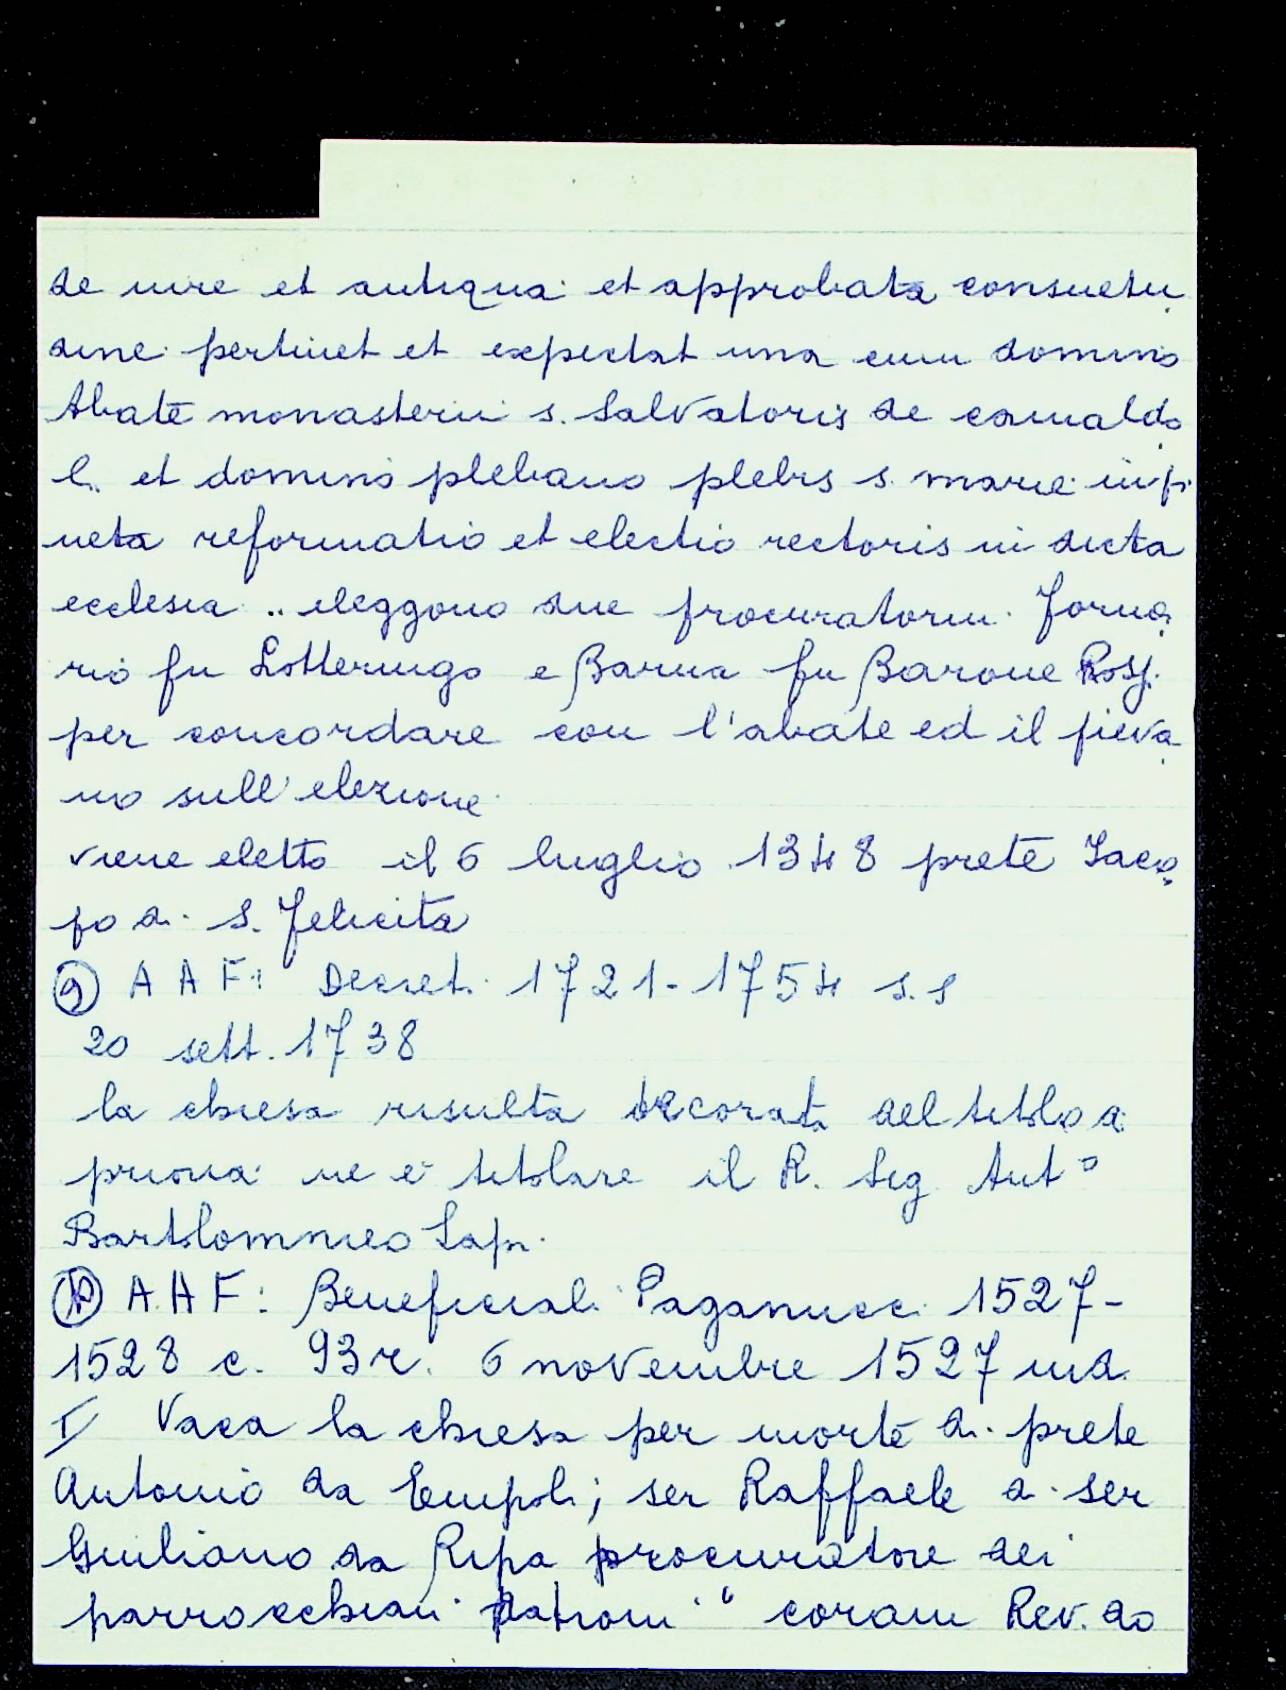 de iure et antiqua et approbata consuetu
dine pertinet et expectat una cum domino
Abate monasterii s. Salvatoris de camaldo
li et domino plebano plebis s. marie inp
neta reformatio et electio rectoris in dicta
ecclesia .. eleggono due procuratori. Forna
rio fu Lotteringo e Barna fu Barone Rossi
per concordare con l'abate ed il pieva
no sull'elezione
viene eletto il 6 luglio 1348 prete Iaco
po di S. Felicita
9 A A F: Decreti 1721-1754 s.s
20 sett. 1738
la chiesa risulta decorata del titolo di
prioria ne è titolare il R. Sig Ant°
Bartolommeo Lapi
10 A.A F: Beneficiali Paganucci 1527-
1528 c. 93r. 6 novembre 1527 ind.
I Vaca la chiesa per morte di prete
Antonio da Empoli; ser Raffaele di ser
Giuliano da Ripa procuratore dei
parrocchiani patroni " coram Rev. do